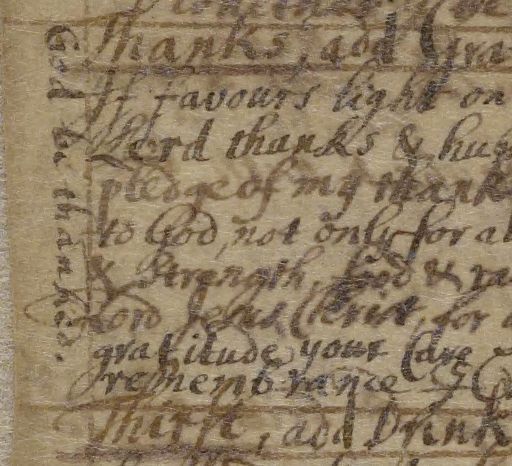 Thanks, add Gra
If favours light on
Lord thanks & hu
pledge of my thank
to God, not only for al
& strength, food & ra
Lord Jesus Christ, for
gratitude your Care
remembrance
Thirst, add Drink
God be thanked.